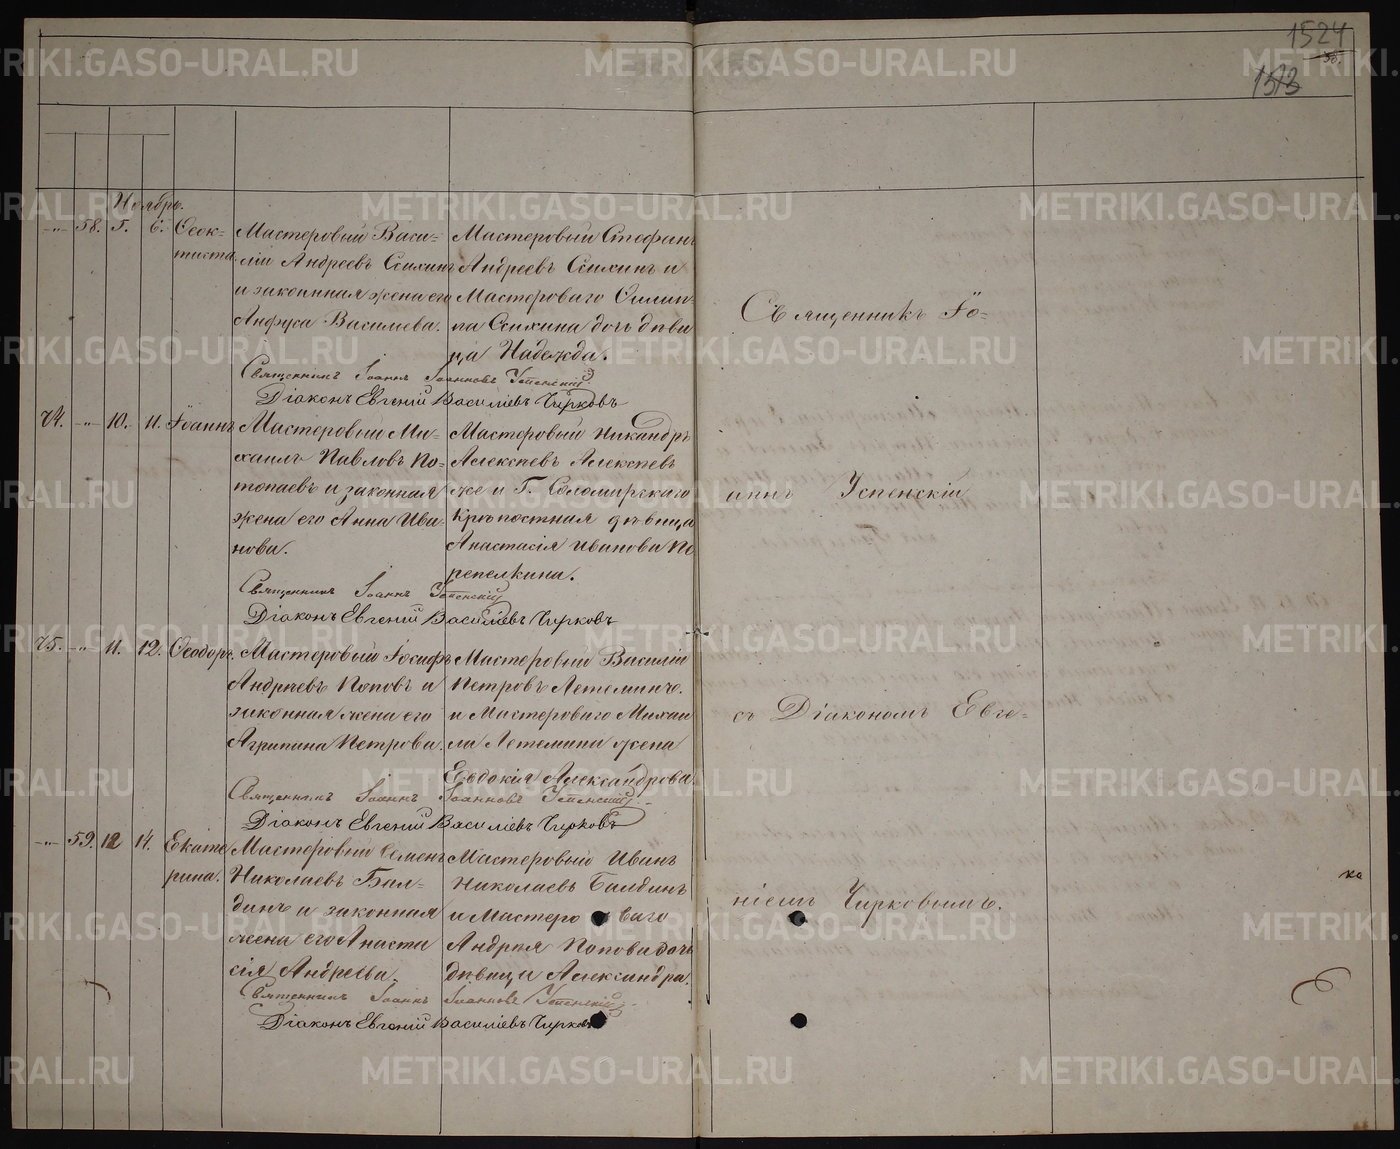 1524
об.
1573
Ноябрь.
-"- 58. 5. 6. Ѳеок-
тиста.
Мастеровый Васи-
лій Андреевъ Сипинъ
и законнная жена его
Анфуса Васильева.
Мастеровый Стефанъ
Андреевъ Сипинъ и
Мастероваго Филип-
па Сипина дочь дѣви
ца Надежда.
Священникъ Іоаннъ Іоанновъ Успенскій
Діаконъ Евгеній Василіевъ Чирковъ
74. -"- 10. 11. Іоаннъ
Мастеровый Ми-
хаилъ Павловъ По-
топаевъ и законная
жена его Анна Ива-
нова.
Мастеровый Никандръ
Алексѣевъ Алексѣевъ
же и Г. Соломирскаго
крѣпостная дѣвица
Анастасія Иванова Пе
репелкина.
Священникъ Іоаннъ Успенскій
Діаконъ Евгеній Василіевъ Чирковъ
75. -"- 11. 12. Ѳеодоръ.
Мастеровый Іосифъ
Андреевъ Поповъ и
законная жена его
Агрипина Петрова.
Мастеровый Василій
Петровъ Летеминъ.
и Мастероваго Михаи
ла Летемина жена
Евдокія Александрова
Священникъ Іоаннъ Іоанновъ Успенскій
Діаконъ Евгеній Василіевъ Чирковъ
-"- 59. 12 14. Екате
рина.
Мастеровый Семенъ
Николаевъ Бал-
динъ и законная
жена его Анаста
сія Андреева.
Мастеровый Иванъ
Николаевъ Балдинъ
и Мастероваго
Андрея Попова дочь
дѣвица Александра.
Священникъ Іоаннъ Іоанновъ Успенскій
Діаконъ Евгеній Василіевъ Чирковъ
Священникъ Іо-
аннъ Успенскій
съ Діакономъ Евге-
ніемъ Чирковымъ.
METRIKI.GASO-URAL.RU